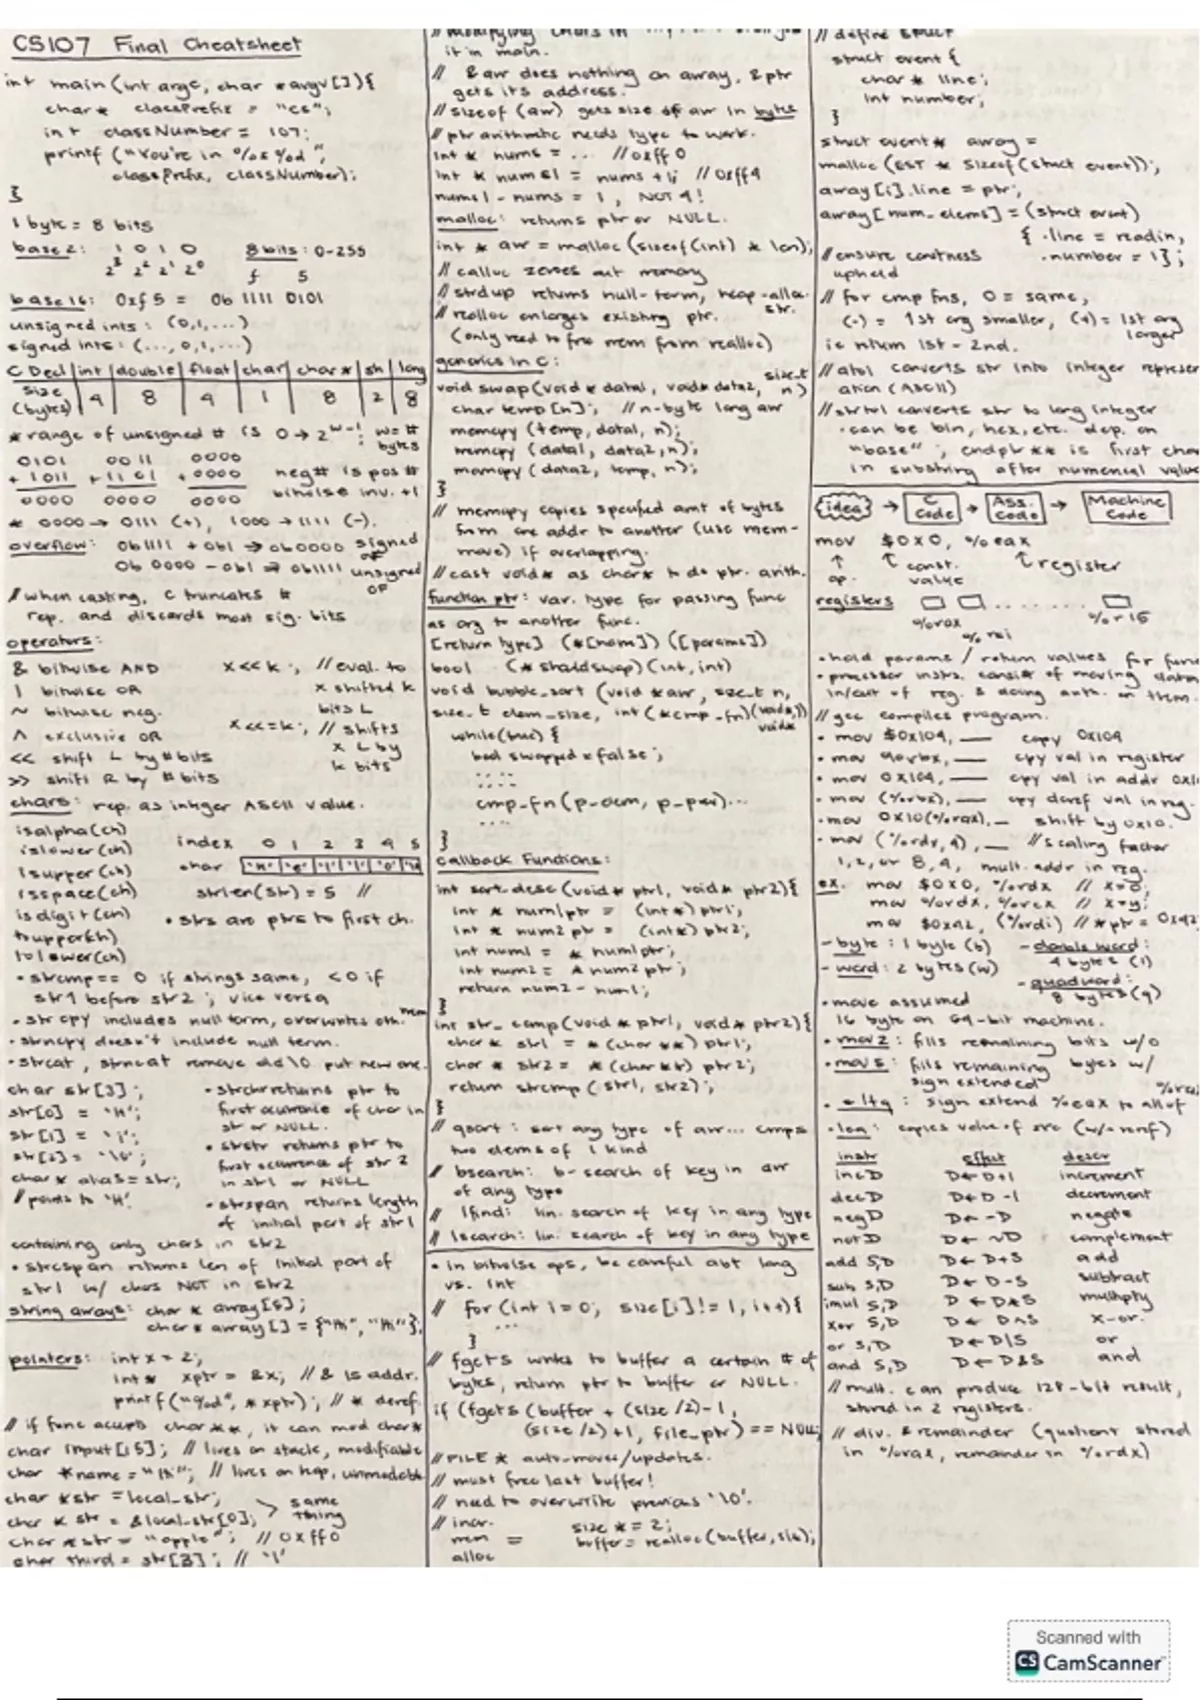 CS107 Final Cheatsheet
int main (int argc, char *argv[]){
char* classPrefix = "cs";
int classNumber = 107;
printf ("You're in %s %d",
classPrefix, classNumber);
}
1 byte = 8 bits
base 2: 1 0 1 0 8 bits: 0-255
2³ 2² 2¹ 2⁰ f 5
base 16: 0xf5 = 0b 1111 0101
unsigned ints: (0,1,...)
signed ints: (..., 0,1,...)
C Decl | int | double | float | char | char* | sh | long
size (bytes) | 4 | 8 | 4 | 1 | 8 | 2 | 8
* range of unsigned # is 0→2^w-1; w=# bytes
0101 0011 0000
+ 1011 + 1101 + 0000 neg# is pos #
0000 0000 0000 bitwise inv. +1
* 0000 → 0111 (+), 1000 → 1111 (-).
overflow: 0b1111 + 0b1 → 0b0000 signed OF
0b 0000 - 0b1 → 0b1111 unsigned OF
// when casting, C truncates #
rep. and discards most sig. bits
operators:
& bitwise AND x<<k; // eval. to
| bitwise OR x shifted k
~ bitwise neg. bits L
^ exclusive OR x<<=k; // shifts
<< shift L by # bits x L by
>> shift R by # bits k bits
chars: rep. as integer ASCII value.
isalpha(ch)
islower(ch) index 0 1 2 3 4 5
isupper(ch) char
isspace(ch) strlen(str) = 5 //
isdigit(ch) • strs are ptrs to first ch.
toupper(ch)
tolower(ch)
• strcmp == 0 if strings same, <0 if
str1 before str2; vice versa
• strcpy includes null term, overwrites oth. mem
• strncpy doesn't include null term.
• strcat, strncat remove old \0 put new one.
char str[3];
str[0] = 'H';
str[1] = 'i';
str[2] = '\0';
char* alias = str;
// points to 'H'.
• strchr returns ptr to
first occurrence of char in
str or NULL.
• strstr returns ptr to
first occurrence of str 2
in str1 or NULL
• strspan returns length
of initial part of str1
containing only chars in str2
• strcspan returns len of initial part of
str1 w/ chars NOT in str2
string arrays: char * array[5];
char * array[] = {"Hi", "Hi"};
pointers: int x = 2;
int* xptr = &x; // & is addr.
printf("%d", *xptr); // * deref.
// if func accepts char**, it can mod char*
char input[15]; // lives on stack, modifiable
char *name = // lives on heap, unmodable
char *str = local_str;
char * str = &local_str[0]; > same thing
char *str = "apple"; // 0xff0
char third = str[3]; // 'l'
it in main.
// &arr does nothing on array, &ptr
gets its address.
// sizeof (arr) gets size of arr in bytes
// ptr arithmetic needs type to work.
int * nums = ... // 0xff0
int * nums1 = nums + 1; // 0xff4
nums1 - nums = 1, NOT 4!
malloc: returns ptr or NULL.
int * arr = malloc (sizeof(int) * len);
// calloc zeroes out memory
// strdup returns null-term, heap-alloc str.
// realloc enlarges existing ptr.
(only need to free mem from realloc)
generics in C:
void swap(void * data1, void* data2, size_t n)
char temp [n]; // n-byte long arr
memcpy (temp, data1, n);
memcpy (data1, data2, n);
memcpy (data2, temp, n);
}
// memcpy copies specified amt of bytes
from one addr to another (use mem-
move) if overlapping.
// cast void* as char* to do ptr. arith.
function ptr: var. type for passing func
as arg to another func.
[return type] (*[name]) ([params])
bool (*shouldswap)(int, int)
void bubble_sort (void *arr, size_t n,
size_t elem_size, int (*cmp_fn)(void*, void*)
while(true) {
bool swapped = false;
....
cmp_fn (p_elem, p_par)...
....
}
Callback Functions:
int sort_desc (void* ptr1, void* ptr2){
int * num1ptr = (int*) ptr1;
int * num2ptr = (int*) ptr2;
int num1 = *num1ptr;
int num2 = *num2ptr;
return num2 - num1;
}
int str_comp(void * ptr1, void * ptr2){
char * str1 = *(char **) ptr1;
char * str2 = *(char **) ptr2;
return strcmp (str1, str2);
}
// qsort: sort any type of arr... cmps
two elems of 1 kind
// bsearch: b-search of key in arr
of any type
// lfind: lin. search of key in any type
// lsearch: lin. search of key in any type
• In bitwise ops, be careful abt long
vs. int
// for (int i = 0; size[i] != 1, i++){
...
}
// fgets writes to buffer a certain # of
bytes, return ptr to buffer or NULL.
if (fgets (buffer + (size/2)-1,
(size/2)+1, file_ptr) == NULL;
// FILE * auto-moves/updates.
// must free last buffer!
// need to overwrite previous '\0'.
// incr. size *= 2;
mem = buffer = realloc(buffer, size);
alloc
// define struct
struct event {
char * line;
int number;
}
struct event* array =
malloc (EST * sizeof(struct event));
array[i].line = ptr;
array[num_elems] = (struct event)
{ .line = readin,
.number = 1};
// ensure constness
upheld
// for cmp fns, 0 = same,
(-) = 1st arg smaller, (+) = 1st arg larger
ie return 1st - 2nd.
// atoi converts str into integer represent
ation (ASCII)
// strtol converts str to long integer
• can be bin, hex, etc. dep. on
"base"; endptr ** is first char
in substring after numerical value
idea → C Code → Ass. Code → Machine Code
mov $0x0, %eax
↑ op. ↑ const. value ↑ register
registers
%rax %rsi %r15
• hold params / return values for func
• processor instrs. consist of moving data
in/out of reg. & doing arith. on them.
// gcc compiles program.
• mov $0x104, __ copy 0x104
• mov %rbx, __ cpy val in register
• mov 0x104, __ cpy val in addr 0x1
• mov (%rbx), __ cpy deref val in reg.
• mov 0x10(%rax), __ shift by 0x10.
• mov (%rdx, 4), __ // scaling factor
1, 2, or 8, 4, mult. addr in reg.
ex. mov $0x0, %rdx // x=0;
mov %rdx, %rcx // x=y;
mov $0x42, (%rdi) // *ptr = 0x42
- byte: 1 byte (b) - double word: 4 bytes (l)
- word: 2 bytes (w) - quadword: 8 bytes (q)
• move assumed
16 byte on 64-bit machine.
• movz: fills remaining bits w/0
• movs: fills remaining bytes w/
sign extended
• cltq: sign extend %eax to all of %rax
• lea: copies value of src (w/o deref)
instr effect descr
inc D D←D+1 increment
dec D D←D-1 decrement
neg D D←-D negate
not D D←~D complement
add S,D D←D+S add
sub S,D D←D-S subtract
imul S,D D←D*S multiply
xor S,D D←D^S x-or.
or S,D D←D|S or
and S,D D←D&S and
// mult. can produce 128-bit result,
stored in 2 registers.
// div. & remainder (quotient stored
in %rax, remainder in %rdx)
Scanned with
CS CamScanner